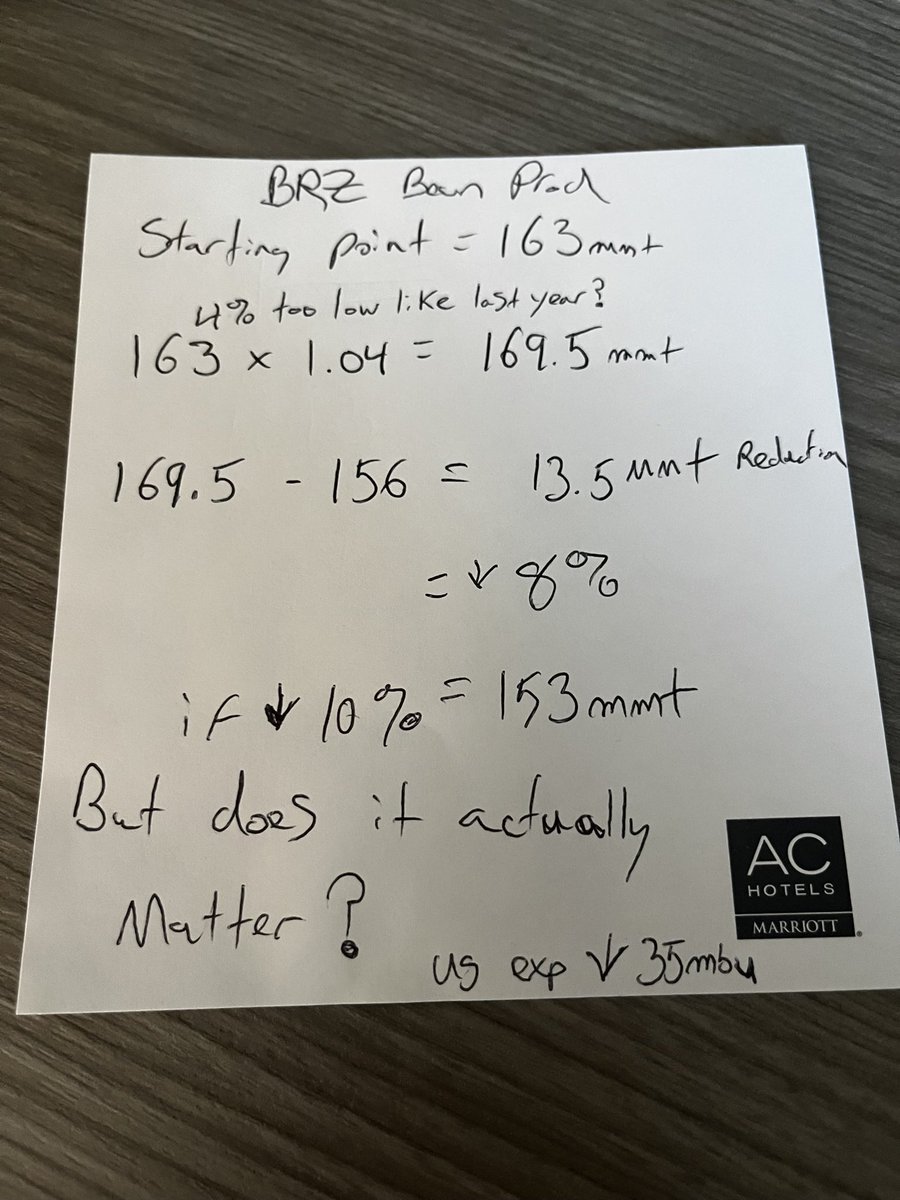 BRZ Bean Prod
Starting point = 163mmt
4% too low like last year?
163 x 1.04 = 169.5 mmt
169.5 - 156 = 13.5 mmt Reduction
= ↓ 8%
if ↓ 10% = 153mmt
But does it actually
Matter?
AC
HOTELS
MARRIOTT
us exp ↓ 35mbu